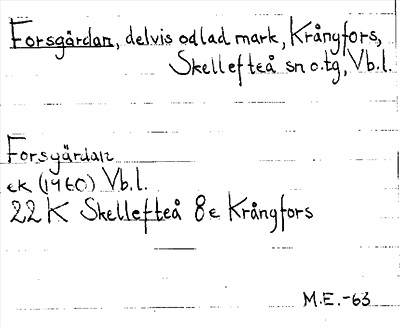 Forsgärdan, delvis odlad mark, Krångfors,
Skellefteå sn o. tg, Vb.l.
Forsgärdan
ek (1960) Vb.l.
22 K Skellefteå 8e Krångfors
M.E.-63